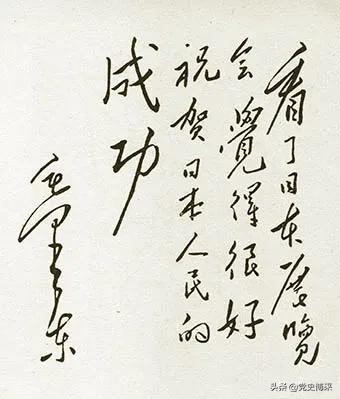 看了日本展覽
会覺得很好
祝贺日本人民的
成功
毛澤东
头条@党史博采